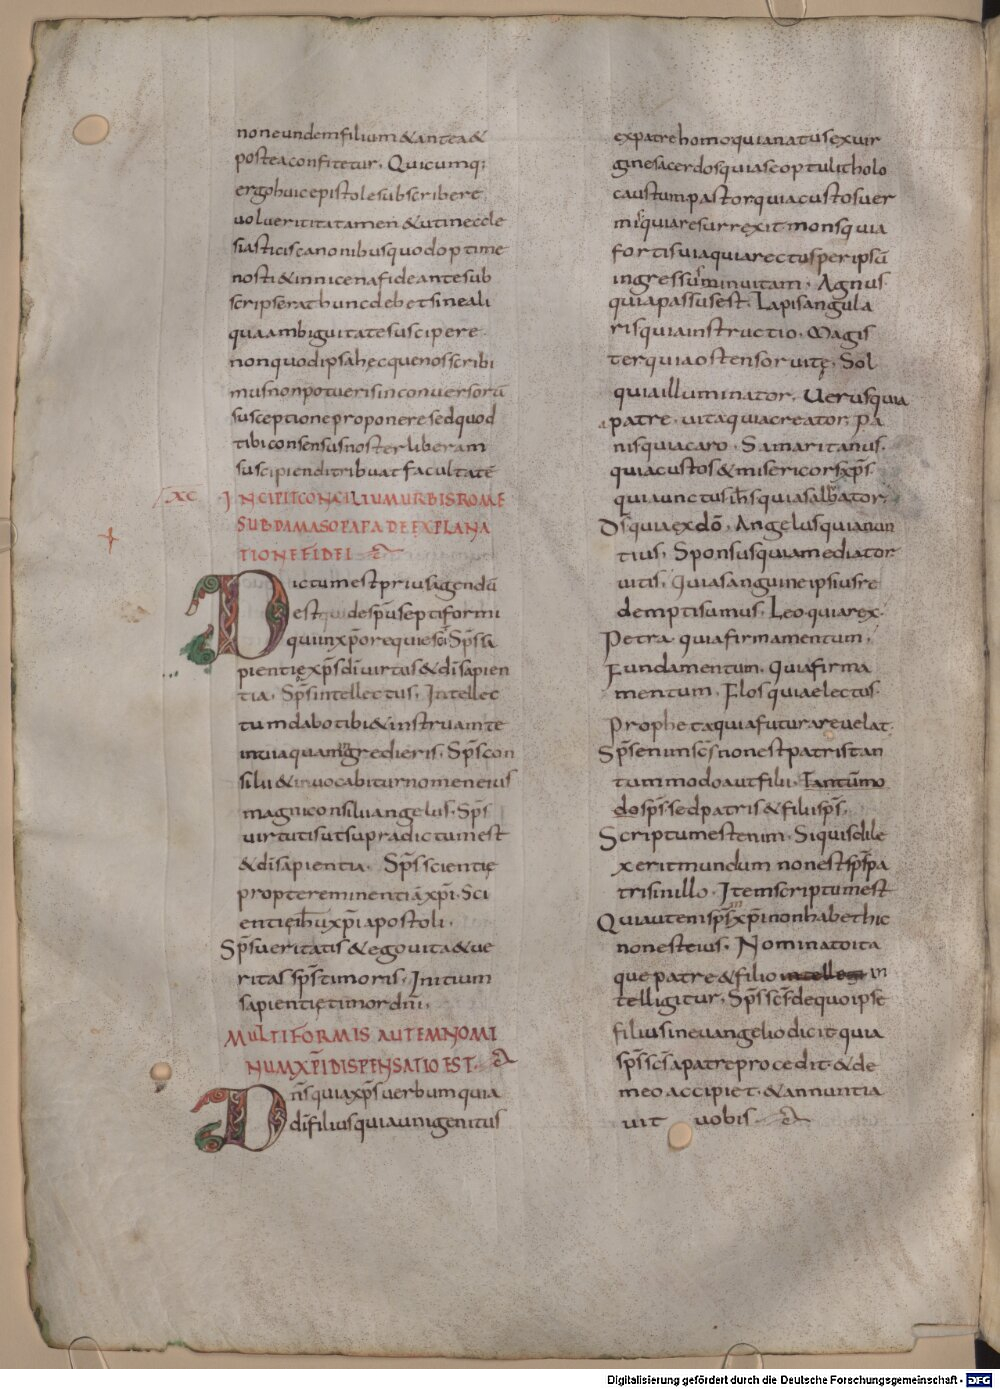 non eundem filium & antea &
postea confitetur. Quicumq;
ergo huic epistole subscribere
uoluerit ita tamen & ut in eccle
siasticis canonibus quod optime
nosti & in nicena fide ante sub
scripserat hunc debet sine ali
qua ambiguitate suscipere.
non quod ipsa hęc que nos scribi
mus non potueris in conuersorū
susceptione proponere sed quod
tibi consensus noster liberam
suscipiendi tribuat facultatē
XC INCIPIT CONCILIUM URBIS ROME
SUB DAMASO PAPA DE EXPLANA
TIONE FIDEI
Dictum est prius agendū
est qui de spū septiformi
qui in xp̄o requiescit Sps̄ sa
pientię xps̄ dī uirtus & dī sapien
tia. Sps̄ intellectus. Intellec
tum dabo tibi & instruam te
in uia qua ingredieris. Sps̄ con
silii & uocabitur nomen eius
magni consilii angelus. Sps̄
uirtutis ut supra dictum est
& dī sapientia. Sps̄ scientię
propter eminentiā xp̄i. Sci
entię ih̄u xp̄i apostoli.
Sps̄ ueritatis & ego uita & ue
ritas sps̄ timoris. Initium
sapientię timor dn̄i.
MULTIFORMIS AUTEM NOMI
NUM XP̄I DISPENSATIO EST.
Dn̄s quia xps̄ uerbum quia
dī filius quia unigenitus
ex patre homo quia natus ex uir
gine sacerdos quia se optulit holo
caustum pastor quia custos uer
mis quia resurrexit mons quia
fortis uia quia rectus per ipsū
ingressus in uitam. Agnus
quia passus est. Lapis angula
ris quia instructio. Magis
ter quia ostensor uitę. Sol
quia illuminator. Uerus quia
a patre. uita quia creator. Pa
nis quia caro. Samaritanus.
quia custos & misericors xps̄.
quia unctus ih̄s quia saluator.
Ds̄ quia ex dō. Angelus quia nun
tius. Sponsus quia mediator
uitis. Quia sanguine ipsius re
dempti sumus. Leo quia rex.
Petra quia firmamentum.
Fundamentum. Quia firma
mentum. Flos quia electus.
Propheta quia futura reuelat.
Sps̄ enim scs̄ non est patris tan
tummodo aut filii. Tantūmo
do sps̄. sed patris & filii sps̄.
Scriptum est enim. Si quis dile
xerit mundum non est sps̄ pa
tris in illo. Item scriptum est
Qui autem sps̄ xp̄i non habet hic
non est eius. Nominato ita
que patre & filio intelleg in
telligitur. Sps̄ scs̄ de quo ipse
filius in euangelio dicit quia
sps̄ scs̄ a patre procedit. & de
meo accipiet. & annuntia
uit uobis.
Digitalisierung gefördert durch die Deutsche Forschungsgemeinschaft - DFG